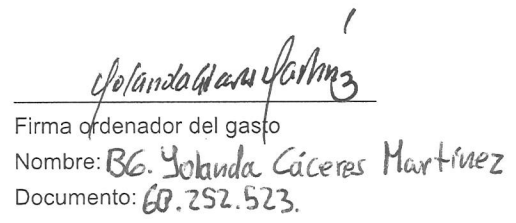 Yolanda Cáceres Martínez
Firma ordenador del gasto
Nombre: BG. Yolanda Cáceres Martínez
Documento: 60.252.523.